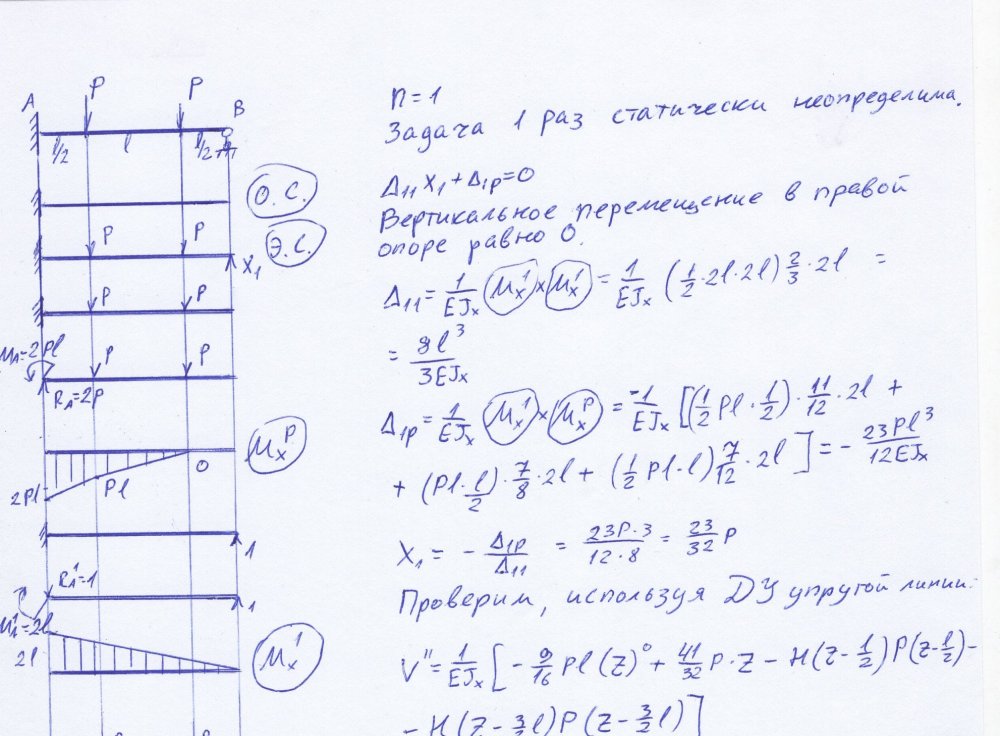 A P P B
l/2 l l/2
О.С.
P P X₁ Э.С.
P P
M_A=2Pl P P
R_A=2P
M_x^P
2Pl Pl O
1
R_A^1=1
M_A^1=2l 1
2l M_x^1
n=1
Задача 1 раз статически неопределима.
Δ₁₁X₁+Δ₁p=0
Вертикальное перемещение в правой
опоре равно 0.
Δ₁₁ = 1/EJx (M_x^1)×(M_x^1) = 1/EJx (1/2·2l·2l) 2/3·2l =
= 8l³/3EJx
Δ₁p = 1/EJx (M_x^1)×(M_x^P) = -1/EJx [(1/2 Pl·1/2)·11/12·2l +
+ (Pl·l/2)·7/8·2l + (1/2 Pl·l) 7/12·2l] = - 23Pl³/12EJx
X₁ = - Δ₁p/Δ₁₁ = 23P·3/12·8 = 23/32 P
Проверим, используя ДУ упругой линии:
V'' = 1/EJx [- 9/16 Pl(z)⁰ + 41/32 P·z - H(z-l/2)P(z-l/2)-
- H(z-3/2 l)P(z-3/2 l)]